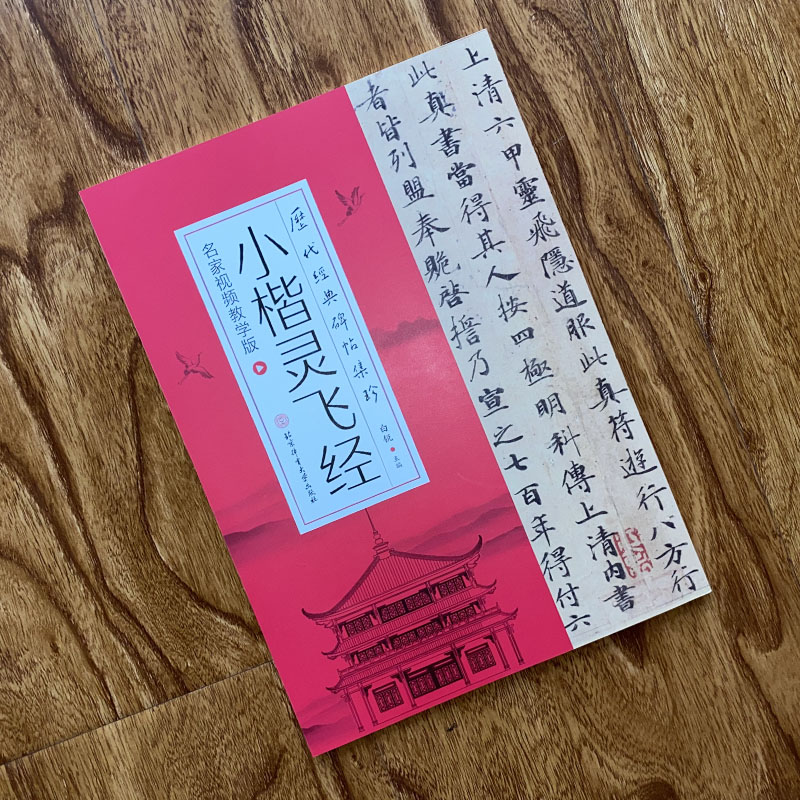 上清六甲靈飛隱道服此真符遊行八方行
此真書當得其人按四極明科傳上清内書
者皆列盟奉貺啓誓乃宣之七百年得付六
歷代經典碑帖集珍
白锐 主编
小楷灵飞经
北京体育大学出版社
名家视频教学版